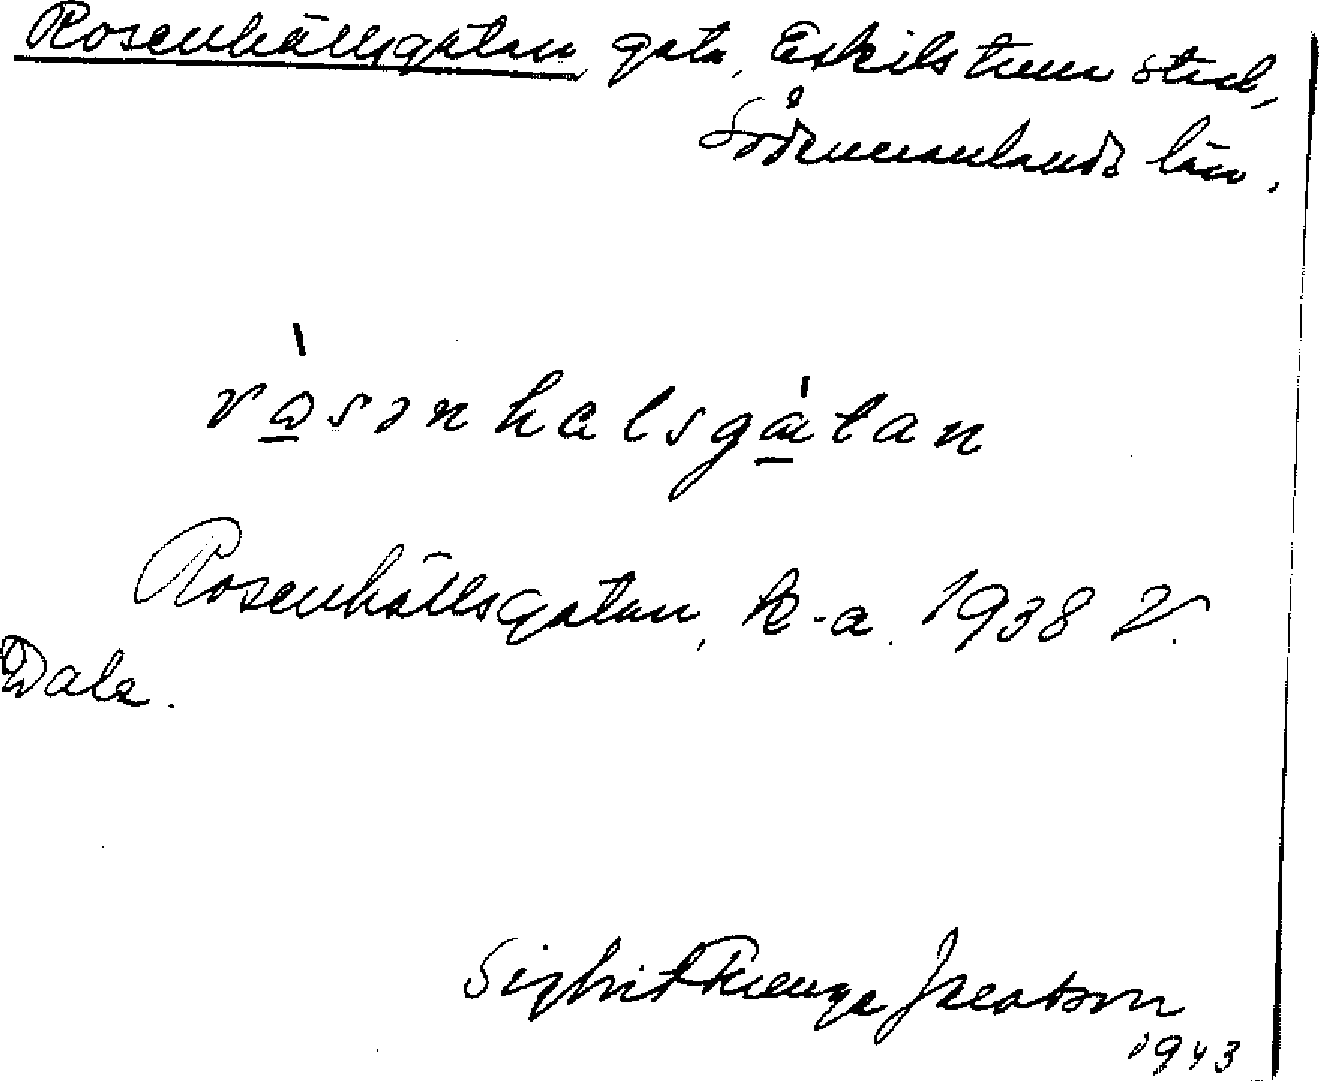 Rosenhällsgatan, gata, Eskilstuna stad,
Södermanlands län.
ròsənhalsgàtan
Rosenhällsgatan, k-a. 1938 V.
Dala.
Sigbrit Plænge Jacobson
1943